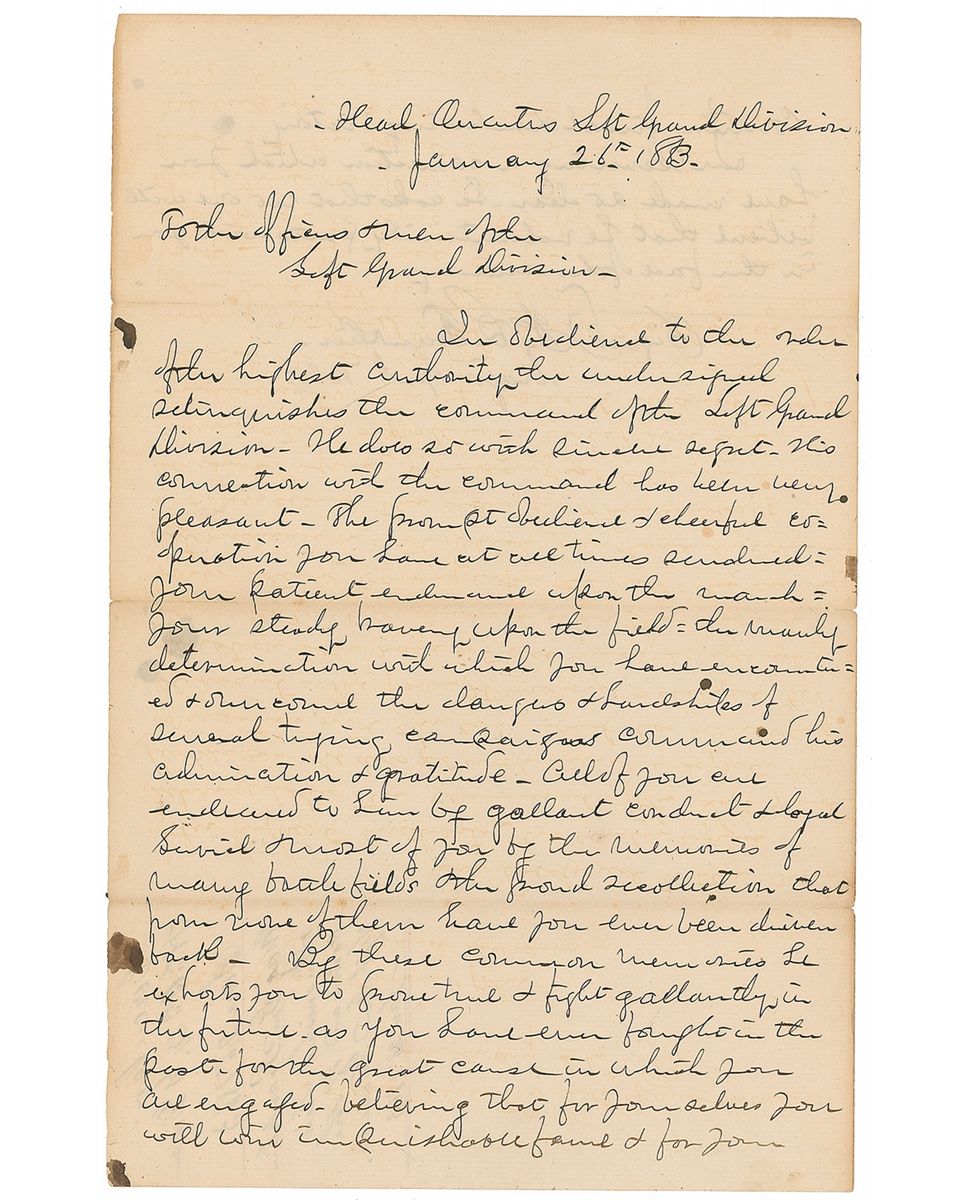 - Head Quarters Left Grand Division
- January 26th 1863 -
To the officers & men of the
Left Grand Division -
In obedience to the order
of the highest authority the undersigned
relinquishes the command of the Left Grand
Division - He does so with sincere regret - His
connection with the command has been very
pleasant - The prompt obedience & cheerful co=
operation you have at all times rendered =
your patient endurance upon the march =
your steady bravery upon the field = the manly
determination with which you have encounter=
ed & overcome the dangers & hardships of
several trying campaigns command his
admiration & gratitude - All of you are
endeared to him by gallant conduct & loyal
service & most of you by the memories of
many battle fields & the proud recollection that
from none of them have you ever been driven
back - By these common memories he
exhorts you to prove true & fight gallantly in
the future - as you have ever fought in the
past - for the great cause in which you
are engaged - believing that for yourselves you
will win imperishable fame & for your